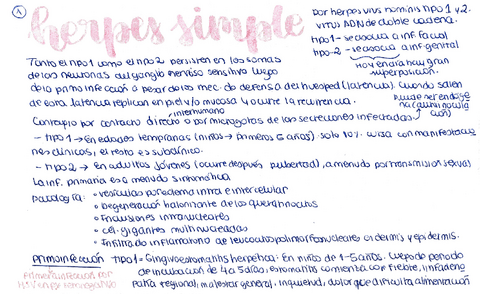 herpes simple
Por herpes virus hominis tipo 1 y 2.
virus ADN de doble cadena.
tipo 1 - se asocia a inf. facial
tipo-2 - se asocia a inf. genital
hoy en día hay gran superposición.
Tanto el tipo 1 como el tipo 2 persisten en los somas
de las neuronas del ganglio nervioso sensitivo luego
de la primoinfección a pesar de los mec. de defensa del huésped (latencia). Cuando salen
de esta latencia replican en piel y/o mucosa y ocurre la recurrencia.
Contagio por contacto directo o por microgotas de las secreciones infectadas
interhumano
puede ser endógena (autoinoculación)
- tipo 1 → En edades tempranas (niños → primeros 6 años) solo 10% cursa con manifestaciones clínicas, el resto es subclínico.
- tipo 2 → En adultos jóvenes (ocurre después pubertad), a menudo por transmisión sexual
La inf. primaria es a menudo sintomática
Patología:
• vesículas por edema intra e intercelular
• Degeneración balonizante de los queratinocitos
• Inclusiones intranucleares
• cel. gigantes multinucleadas
• Infiltrado inflamatorio de leucocitos polimorfonucleares en dermis y epidermis.
Primoinfección
tipo 1 = Gingivoestomatitis herpética: En niños de 1-5 años. Luego de periodo
de incubación de 4 a 5 días, estomatitis comienza con fiebre, linfadeno
patía regional, malestar general, inquietud, dolor que dificulta alimentación